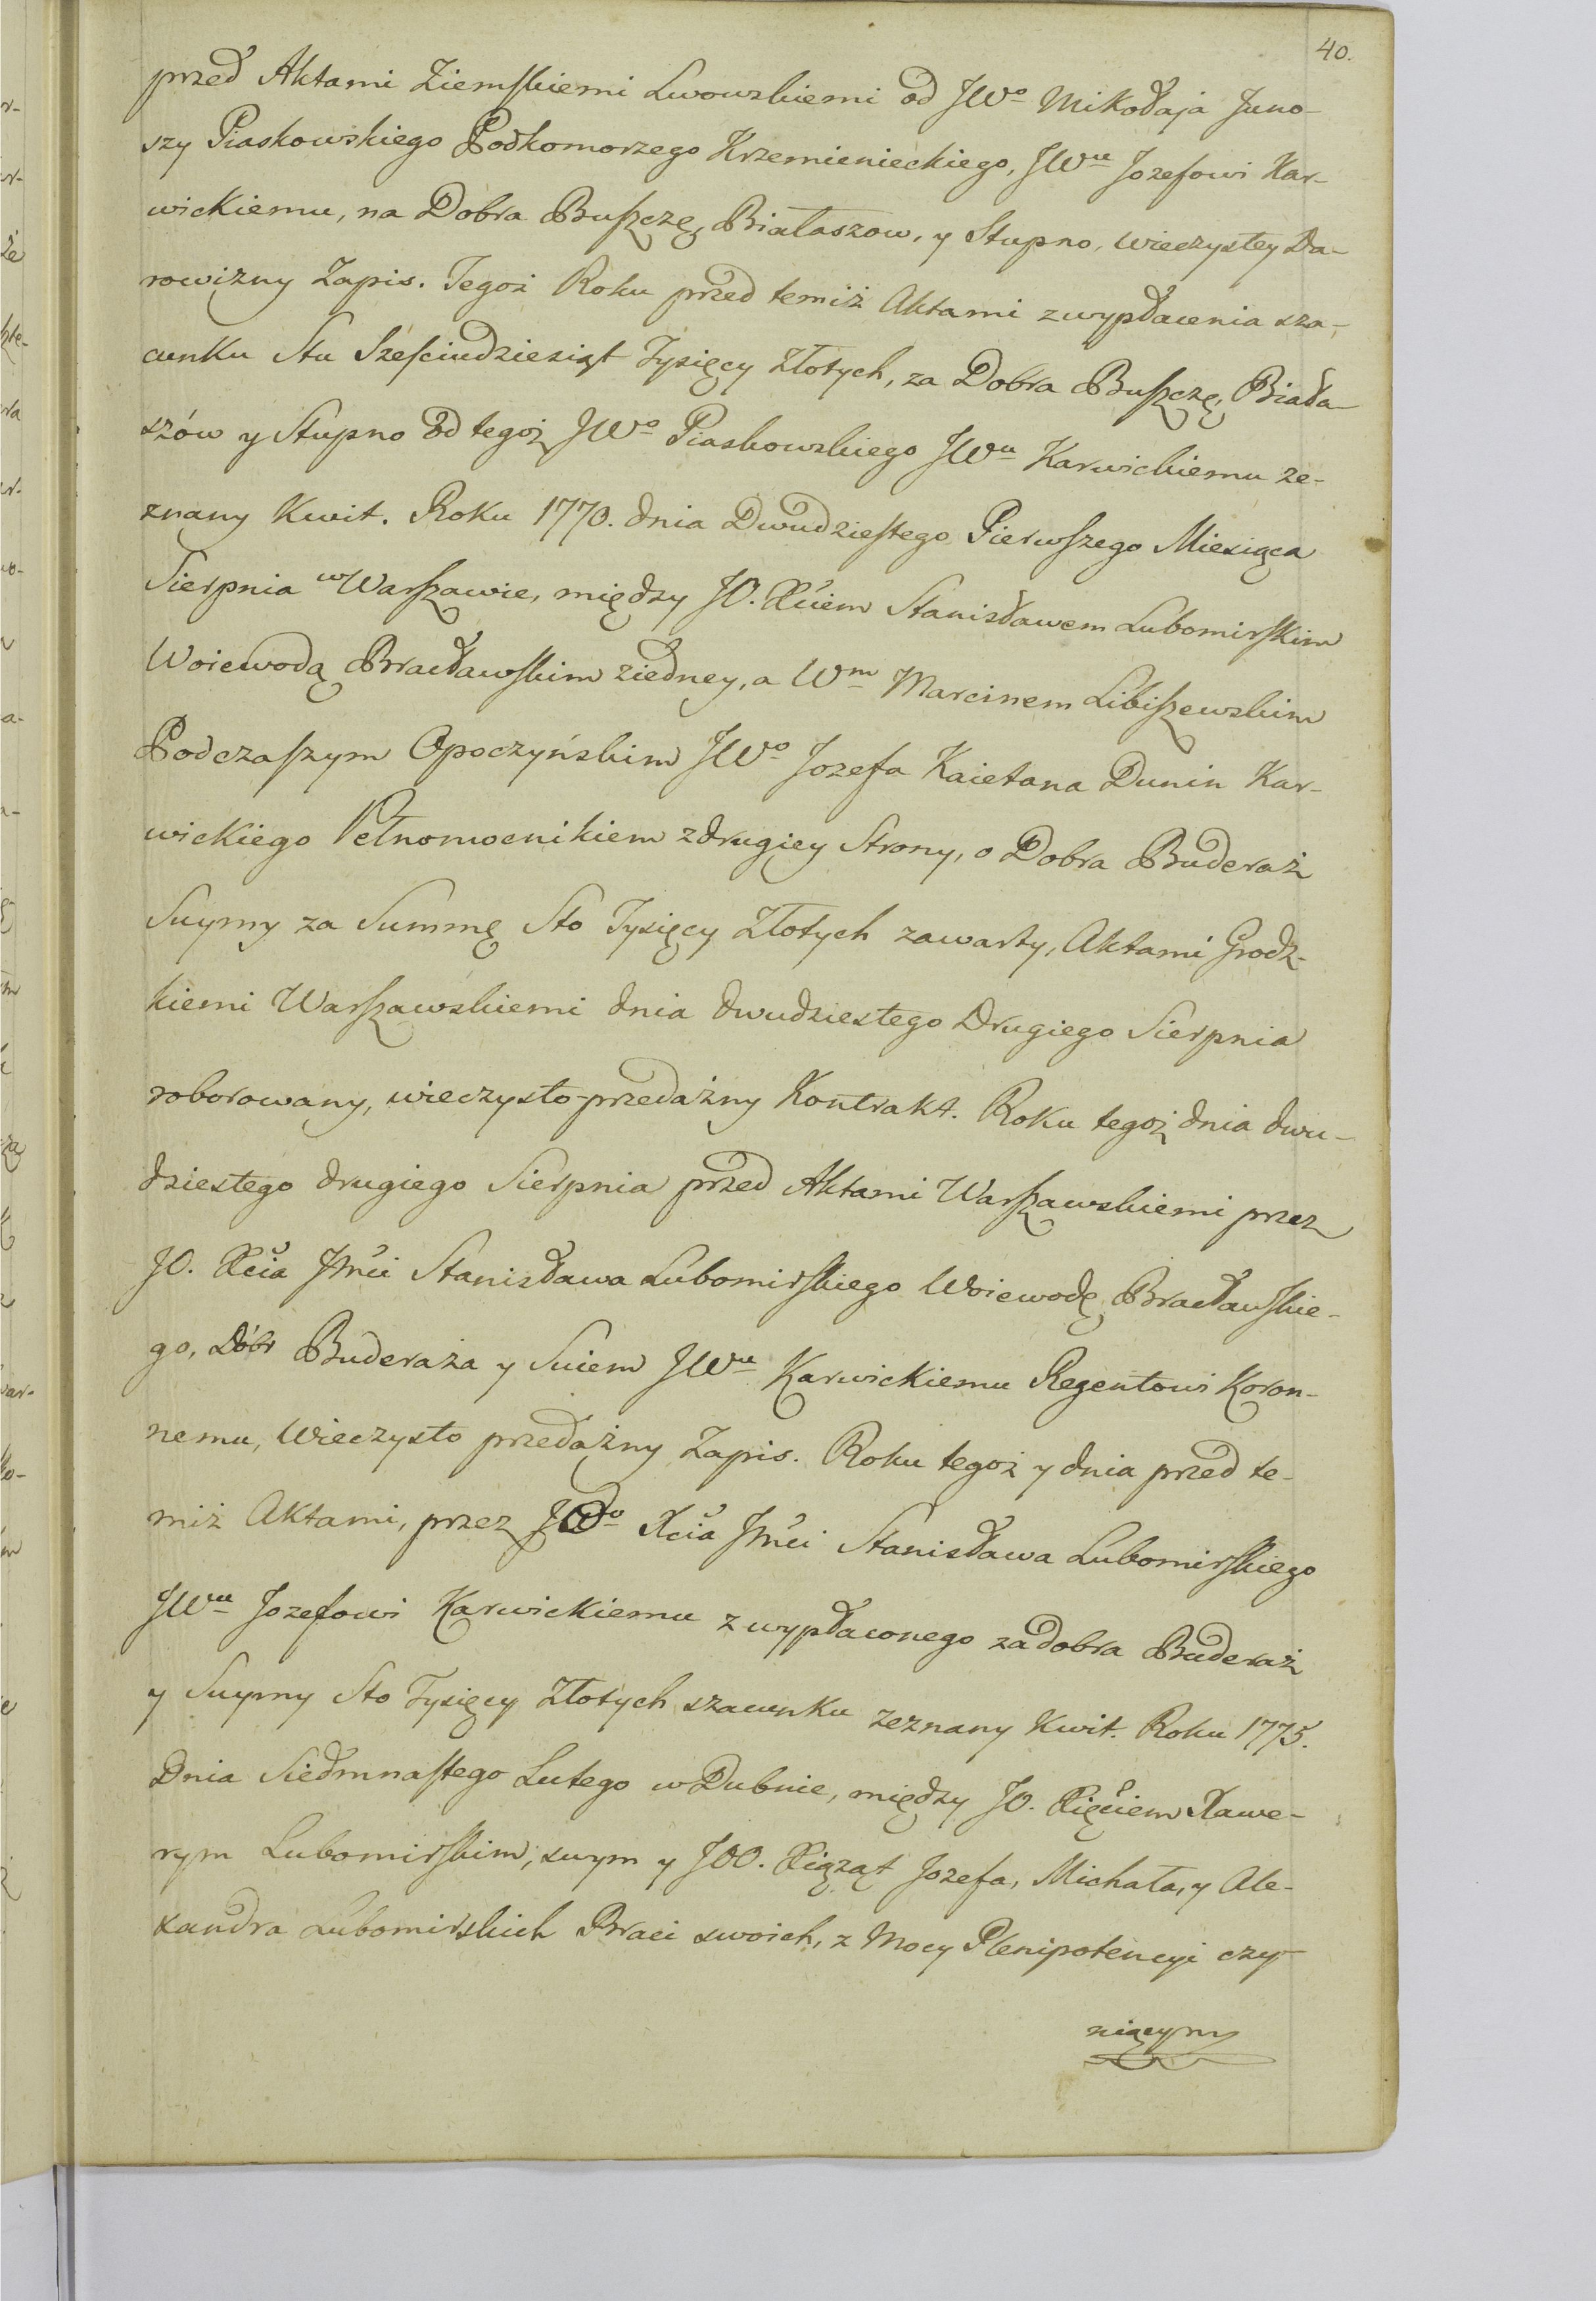 40.
przed Aktami Ziemskiemi Lwowskiemi od JWo Mikołaja Juno-
szy Piaskowskiego Podkomorzego Krzemienieckiego, JWu Jozefowi Kar-
wickiemu, na Dobra Buszczę, Białaszow, y Stupno, wieczystey Da-
rowizny Zapis. Tegoż Roku przed temiż Aktami z wypłacenia sza-
cunku Stu Sześciudziesiąt Tysięcy Złotych, za Dobra Buszczę, Biała-
szów y Stupno od tegoż JWo Piaskowskiego JWu Karwickiemu ze-
znany Kwit. Roku 1770. dnia Dwudziestego Pierwszego Miesiąca
Sierpnia w Warszawie, między JO. Xciem Stanisławem Lubomirskim
Woiewodą Bracławskim ziedney, a Wm Marcinem Libiszewskim
Podczaszym Opoczyńskim JWo Jozefa Kaietana Dunin Kar-
wickiego Pełnomocnikiem z drugiey Strony, o Dobra Buderaż
Suymy za Summę Sto Tysięcy Złotych zawarty, Aktami Grodz-
kiemi Warszawskiemi dnia dwudziestego Drugiego Sierpnia
roborowany, wieczysto-przedażny Kontrakt. Roku tegoż dnia dwu-
dziestego drugiego Sierpnia przed Aktami Warszawskiemi przez
JO. Xcia Jmci Stanisława Lubomirskiego Woiewodę Bracławskie-
go, Dóbr Buderaża y Suiem JWu Karwickiemu Regentowi Koron-
nemu, Wieczysto przedażny Zapis. Roku tegoż y dnia przed te-
miż Aktami, przez JOo Xcia Jmci Stanisława Lubomirskiego
JWu Jozefowi Karwickiemu z wypłaconego za dobra Buderaż
y Suymy Sto Tysięcy Złotych szacunku zeznany Kwit. Roku 1775.
Dnia Siedmnastego Lutego w Dubnie, między JO. Xięciem Xawe-
rym Lubomirskim, swym y JOO. Xiąząt Jozefa, Michała, y Ale-
xandra Lubomirskich Braci swoich, z Mocy Plenipotencyi czy-
niącym